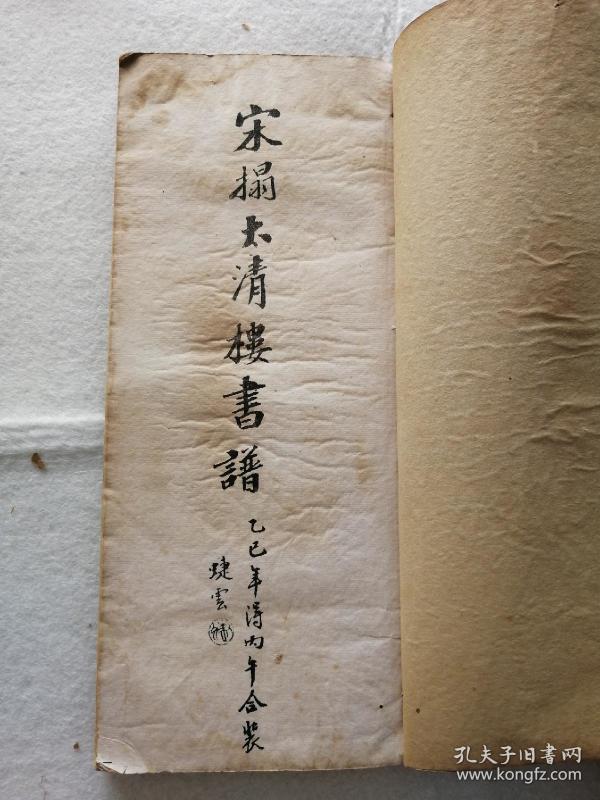 宋搨太清樓書譜
乙巳年得丙午合裝
孔夫子旧书网
www.kongfz.com